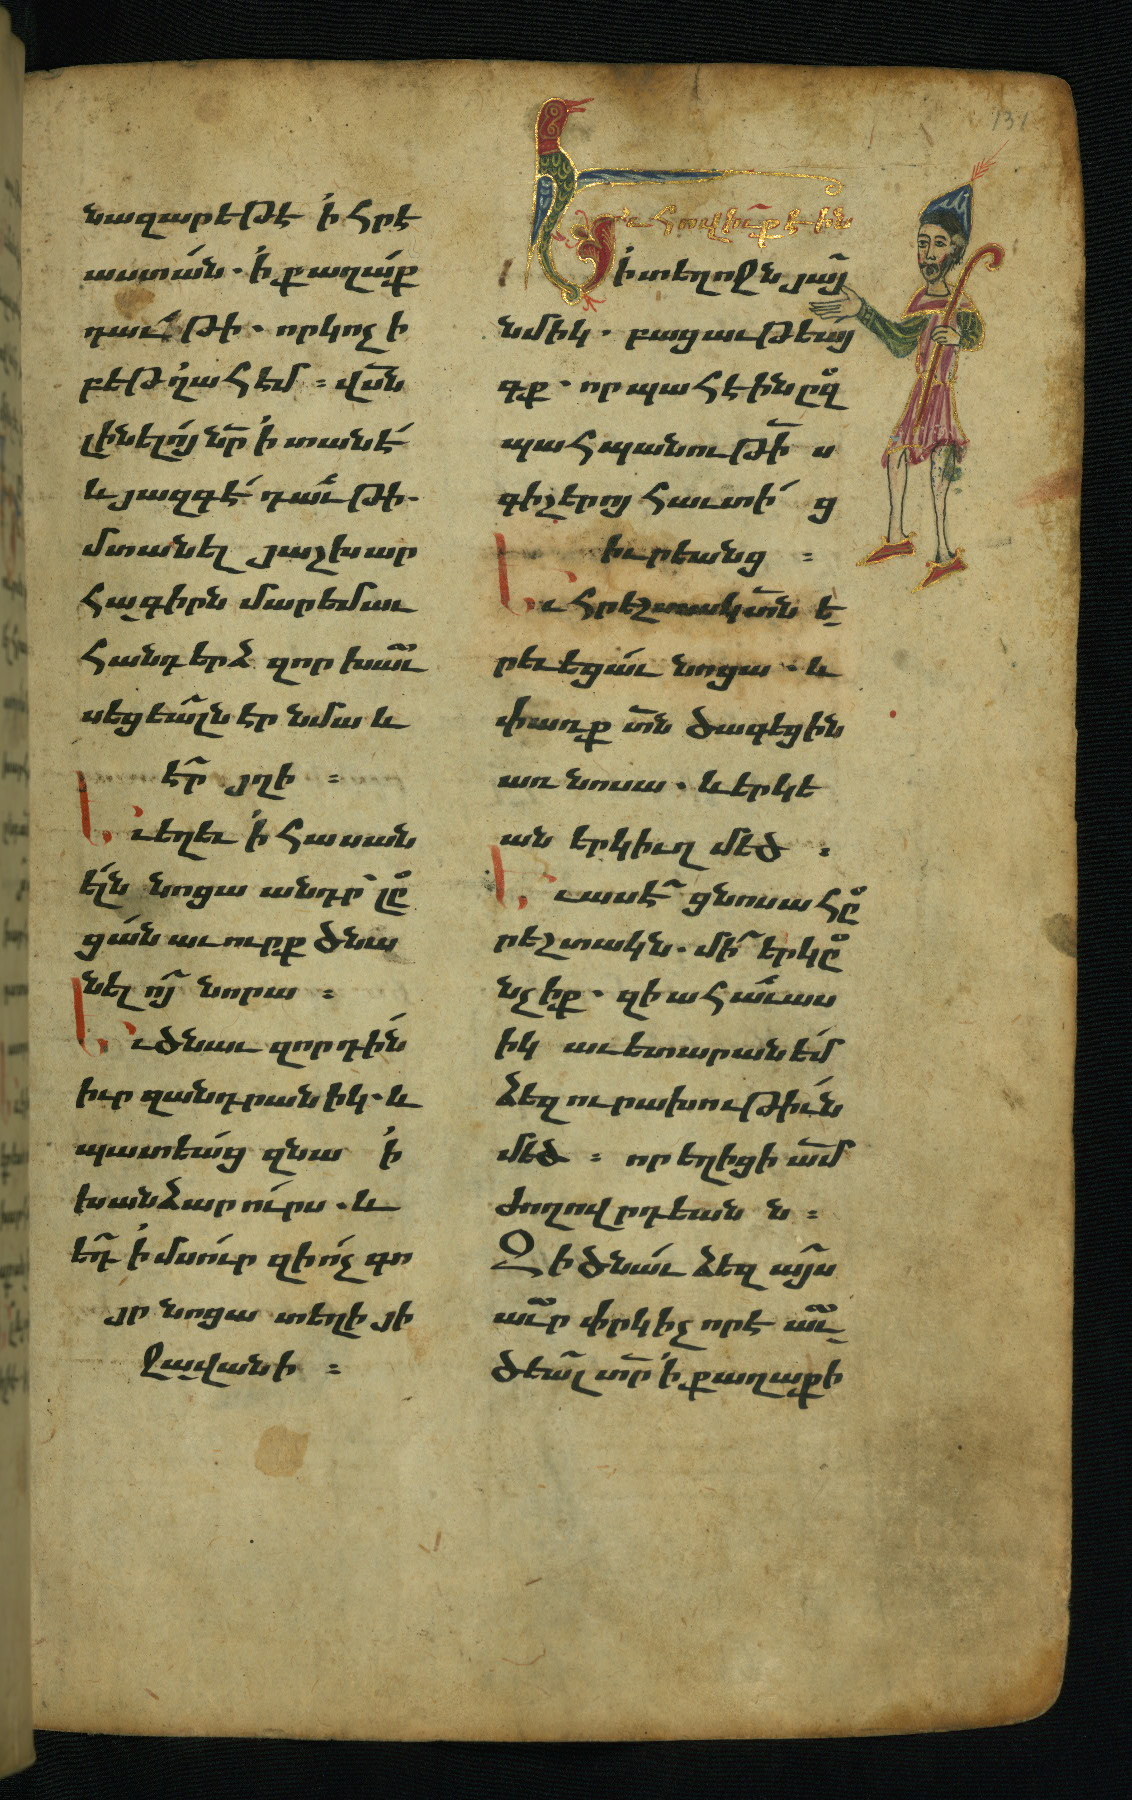 նազարեթէ ՚ի հրէ
աստան. ՚ի քաղաք
դաւթի. որ կոչի
բեթղահեմ : վսն
լինելոյ նր ՚ի տանէ
և յազգէ դաւթի.
մտանել յաշխար
հագիրն մարեմաւ
հանդերձ զոր խաւ
սեցեալն էր նմա և
էր յղի :
Եւ եղեւ ՚ի հասան
ելն նոցա անդր լը
ցան աւուրք ծնա
նելոյ նորա :
Եւ ծնաւ զորդին
իւր զանդրանիկ. և
պատեաց զնա ՚ի
խանձարուրս. և
եդ ՚ի մսուր զի ոչ գո
յր նոցա տեղի յի
ջավանի :
Եւ հովիւք էին
՚ի տեղոջն յայ
նմիկ. բացաւթեայ
գք. որ պահէին ըզ
պահպանութի ս
գիշերոյ հաւտի ց
իւրեանց :
Եւ հրեշտակ տն ե
րեւեցաւ նոցա. և
փառք տն ծագեցին
առ նոսա. և երկե
ան երկիւղ մեծ :
Եւ ասէ ցնոսա հը
րեշտակն. մի երկը
նչիք. զի ահաւաս
իկ աւետարանեմ
ձեզ ուրախութիւն
մեծ : որ եղիցի ամ
ժողովրդեան ն :
Զի ծնաւ ձեզ այս
աւր փրկիչ որ է աւ
ծեալ տր ՚ի քաղաքի
131